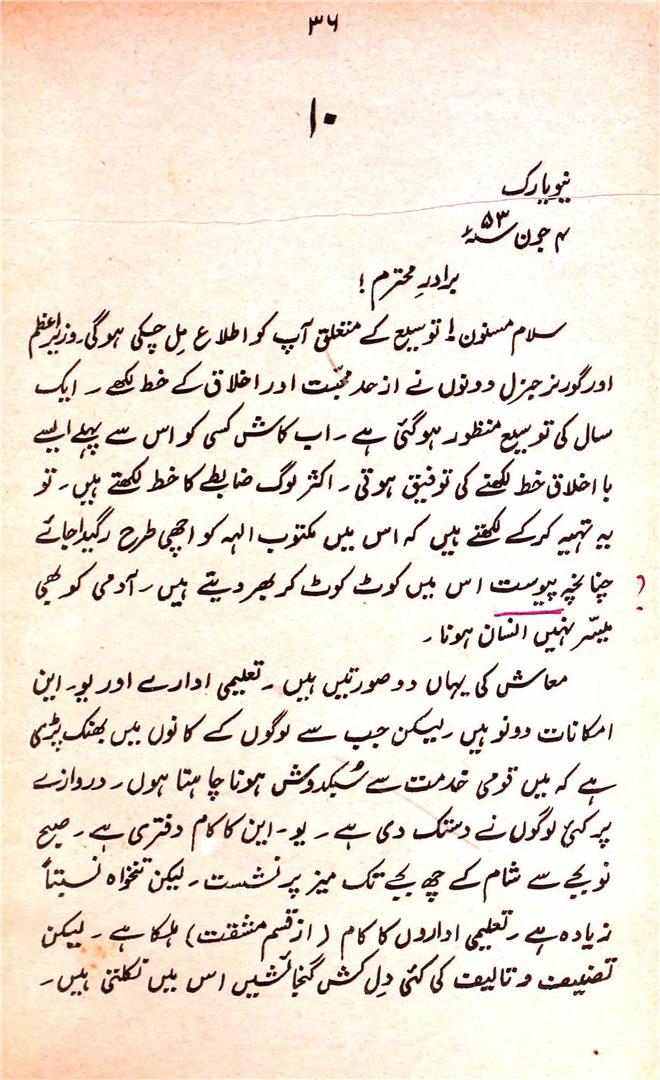 ۳۶
۱۰
نیویارک
۴ جون ۵۳ سنہء
برادرِ محترم !
سلام مسنون ! توسیع کے متعلق آپ کو اطلاع مِل چکی ہوگی۔ وزیراعظم
اور گورنر جنرل دونوں نے ازحد محبّت اور اخلاق کے خط لکھے ۔ ایک
سال کی توسیع منظور ہوگئی ہے ۔ اب کاش کسی کو اس سے پہلے ایسے
با اخلاق خط لکھنے کی توفیق ہوتی ۔ اکثر لوگ ضابطے کا خط لکھتے ہیں ۔ تو
یہ تہیہ کرکے لکھتے ہیں کہ اس میں مکتوب الیہ کو اچھی طرح رگیدا جائے
چنانچہ پیوست اس میں کوٹ کوٹ کر بھر دیتے ہیں ۔ آدمی کو بھی ؟
میسّر نہیں انساں ہونا ۔
معاش کی یہاں دو صورتیں ہیں ۔ تعلیمی ادارے اور یو۔ این
امکانات دونو ہیں ۔ لیکن جب سے لوگوں کے کانوں میں بھنک پڑی
ہے کہ میں قومی خدمت سے سُبکدوش ہونا چاہتا ہوں ۔ دروازے
پر کئی لوگوں نے دستک دی ہے ۔ یو۔ این کا کام دفتری ہے ۔ صبح
نو بجے سے شام کے چھ بجے تک میز پر نشست ۔ لیکن تنخواہ نسبتاً
زیادہ ہے ۔ تعلیمی اداروں کا کام ( از قسم مشقت ) ہلکا ہے ۔ لیکن
تصنیف و تالیف کی کئی دِل کش گنجائشیں اس میں نکلتی ہیں ۔